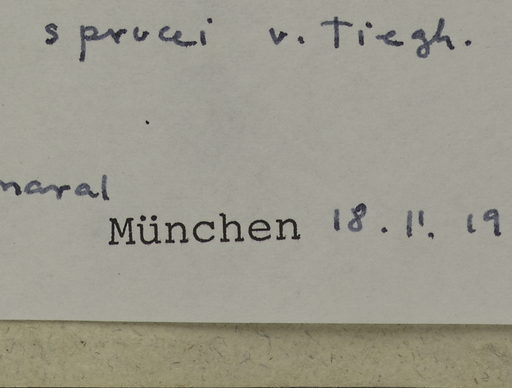 sprucei v. Tiegh.
maral
München 18. 11. 19